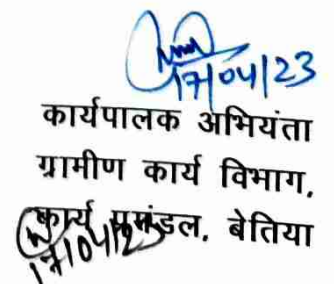 17/04/23
कार्यपालक अभियंता
ग्रामीण कार्य विभाग,
कार्य प्रमंडल, बेतिया
17/04/23